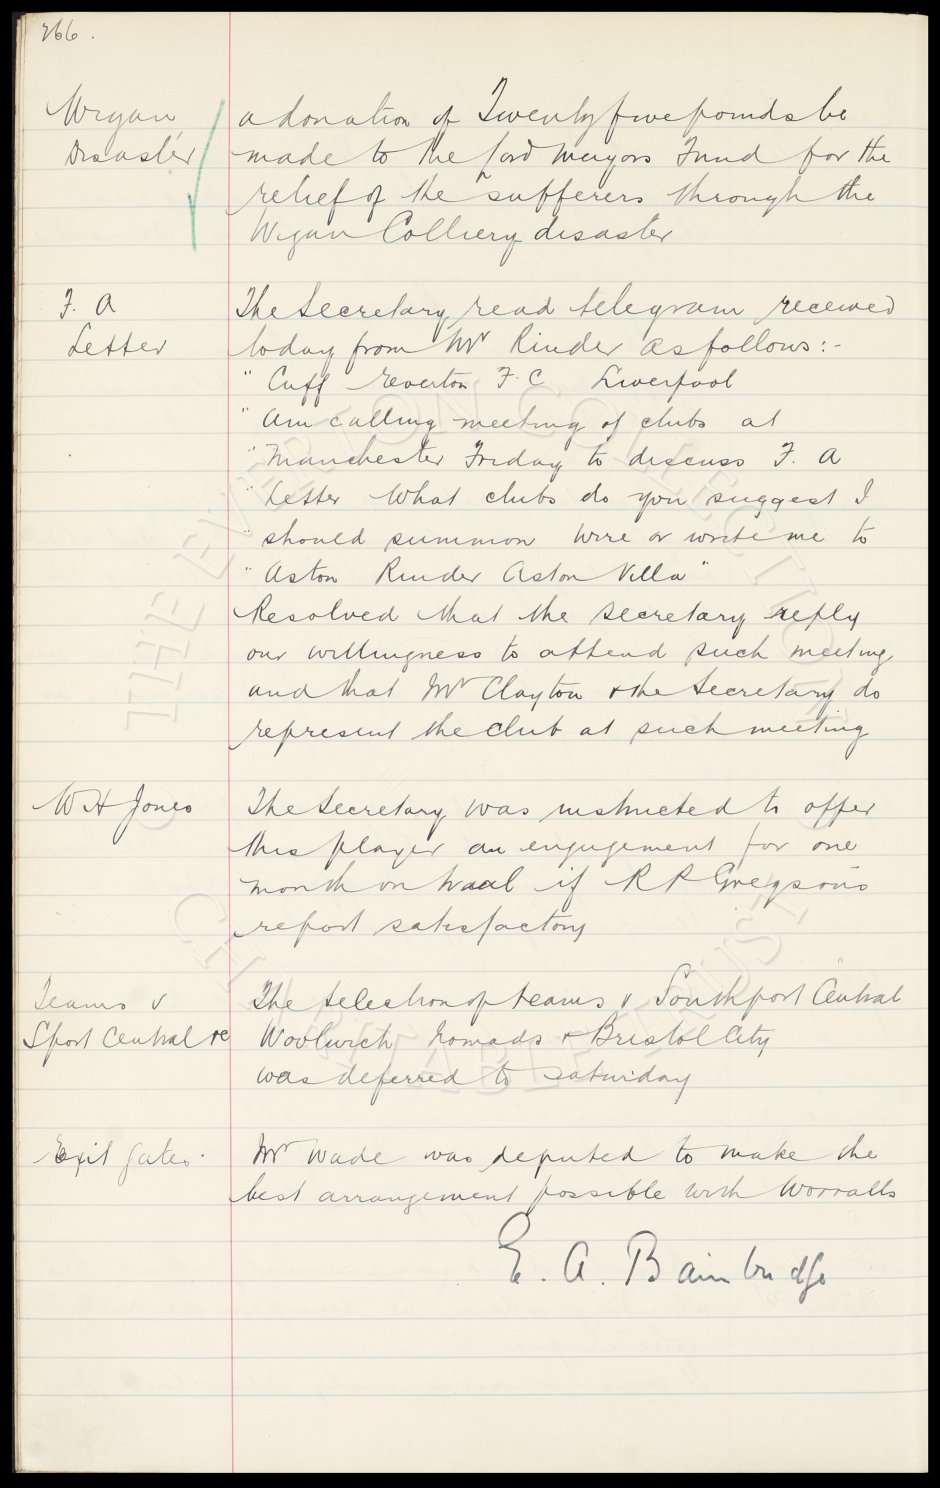 266.
Wigan
Disaster
a donation of Twenty five pounds be
made to the Lord Mayors Fund for the
relief of the sufferers through the
Wigan Colliery disaster
F. A
Letter
The Secretary read telegram received
today from Mr Rinder as follows:-
" Cuff Everton F.C Liverpool
" Am calling meeting of clubs at
" Manchester Friday to discuss F. A
" Letter What clubs do you suggest I
" should summon Wire or write me to
" Aston Rinder Aston Villa"
Resolved that the Secretary reply
our willingness to attend such meeting
and that Mr Clayton & the Secretary do
represent the club at such meeting
W H Jones
The Secretary was instructed to offer
this player an engagement for one
month on trial if R R Greyson's
report satisfactory
Teams v
S'port Central &c
The selection of teams v Southport Central
Woolwich Nomads & Bristol City
was deferred to Saturday
Exit gates.
Mr Wade was deputed to make the
best arrangement possible with Worralls
E. A. Bainbridge
THE EVERTON COLLECTION
CHARITABLE TRUST